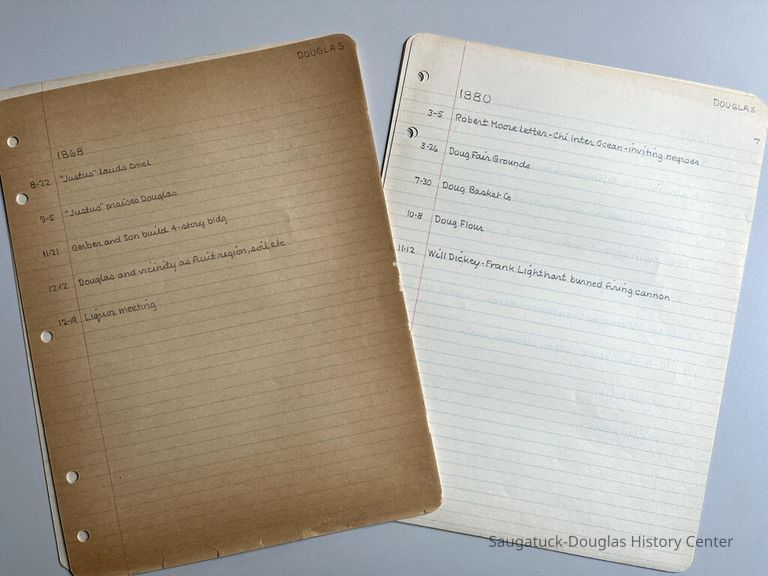 DOUGLAS
1868
8-22 "Justus" lauds cmcl
9-5 "Justus" praises Douglas
11-21 Gerber and Son build 4-story bldg
12-12 Douglas and vicinity as fruit region, soil etc
12-19 Liquor meeting
DOUGLAS
7
1880
3-5 Robert Moore Letter-Chi Inter Ocean-inviting negroes
3-26 Doug Fair Grounds
7-30 Doug Basket Co
10-8 Doug Flour
11-12 Will Dickey-Frank Lighthart burned firing cannon
Saugatuck-Douglas History Center